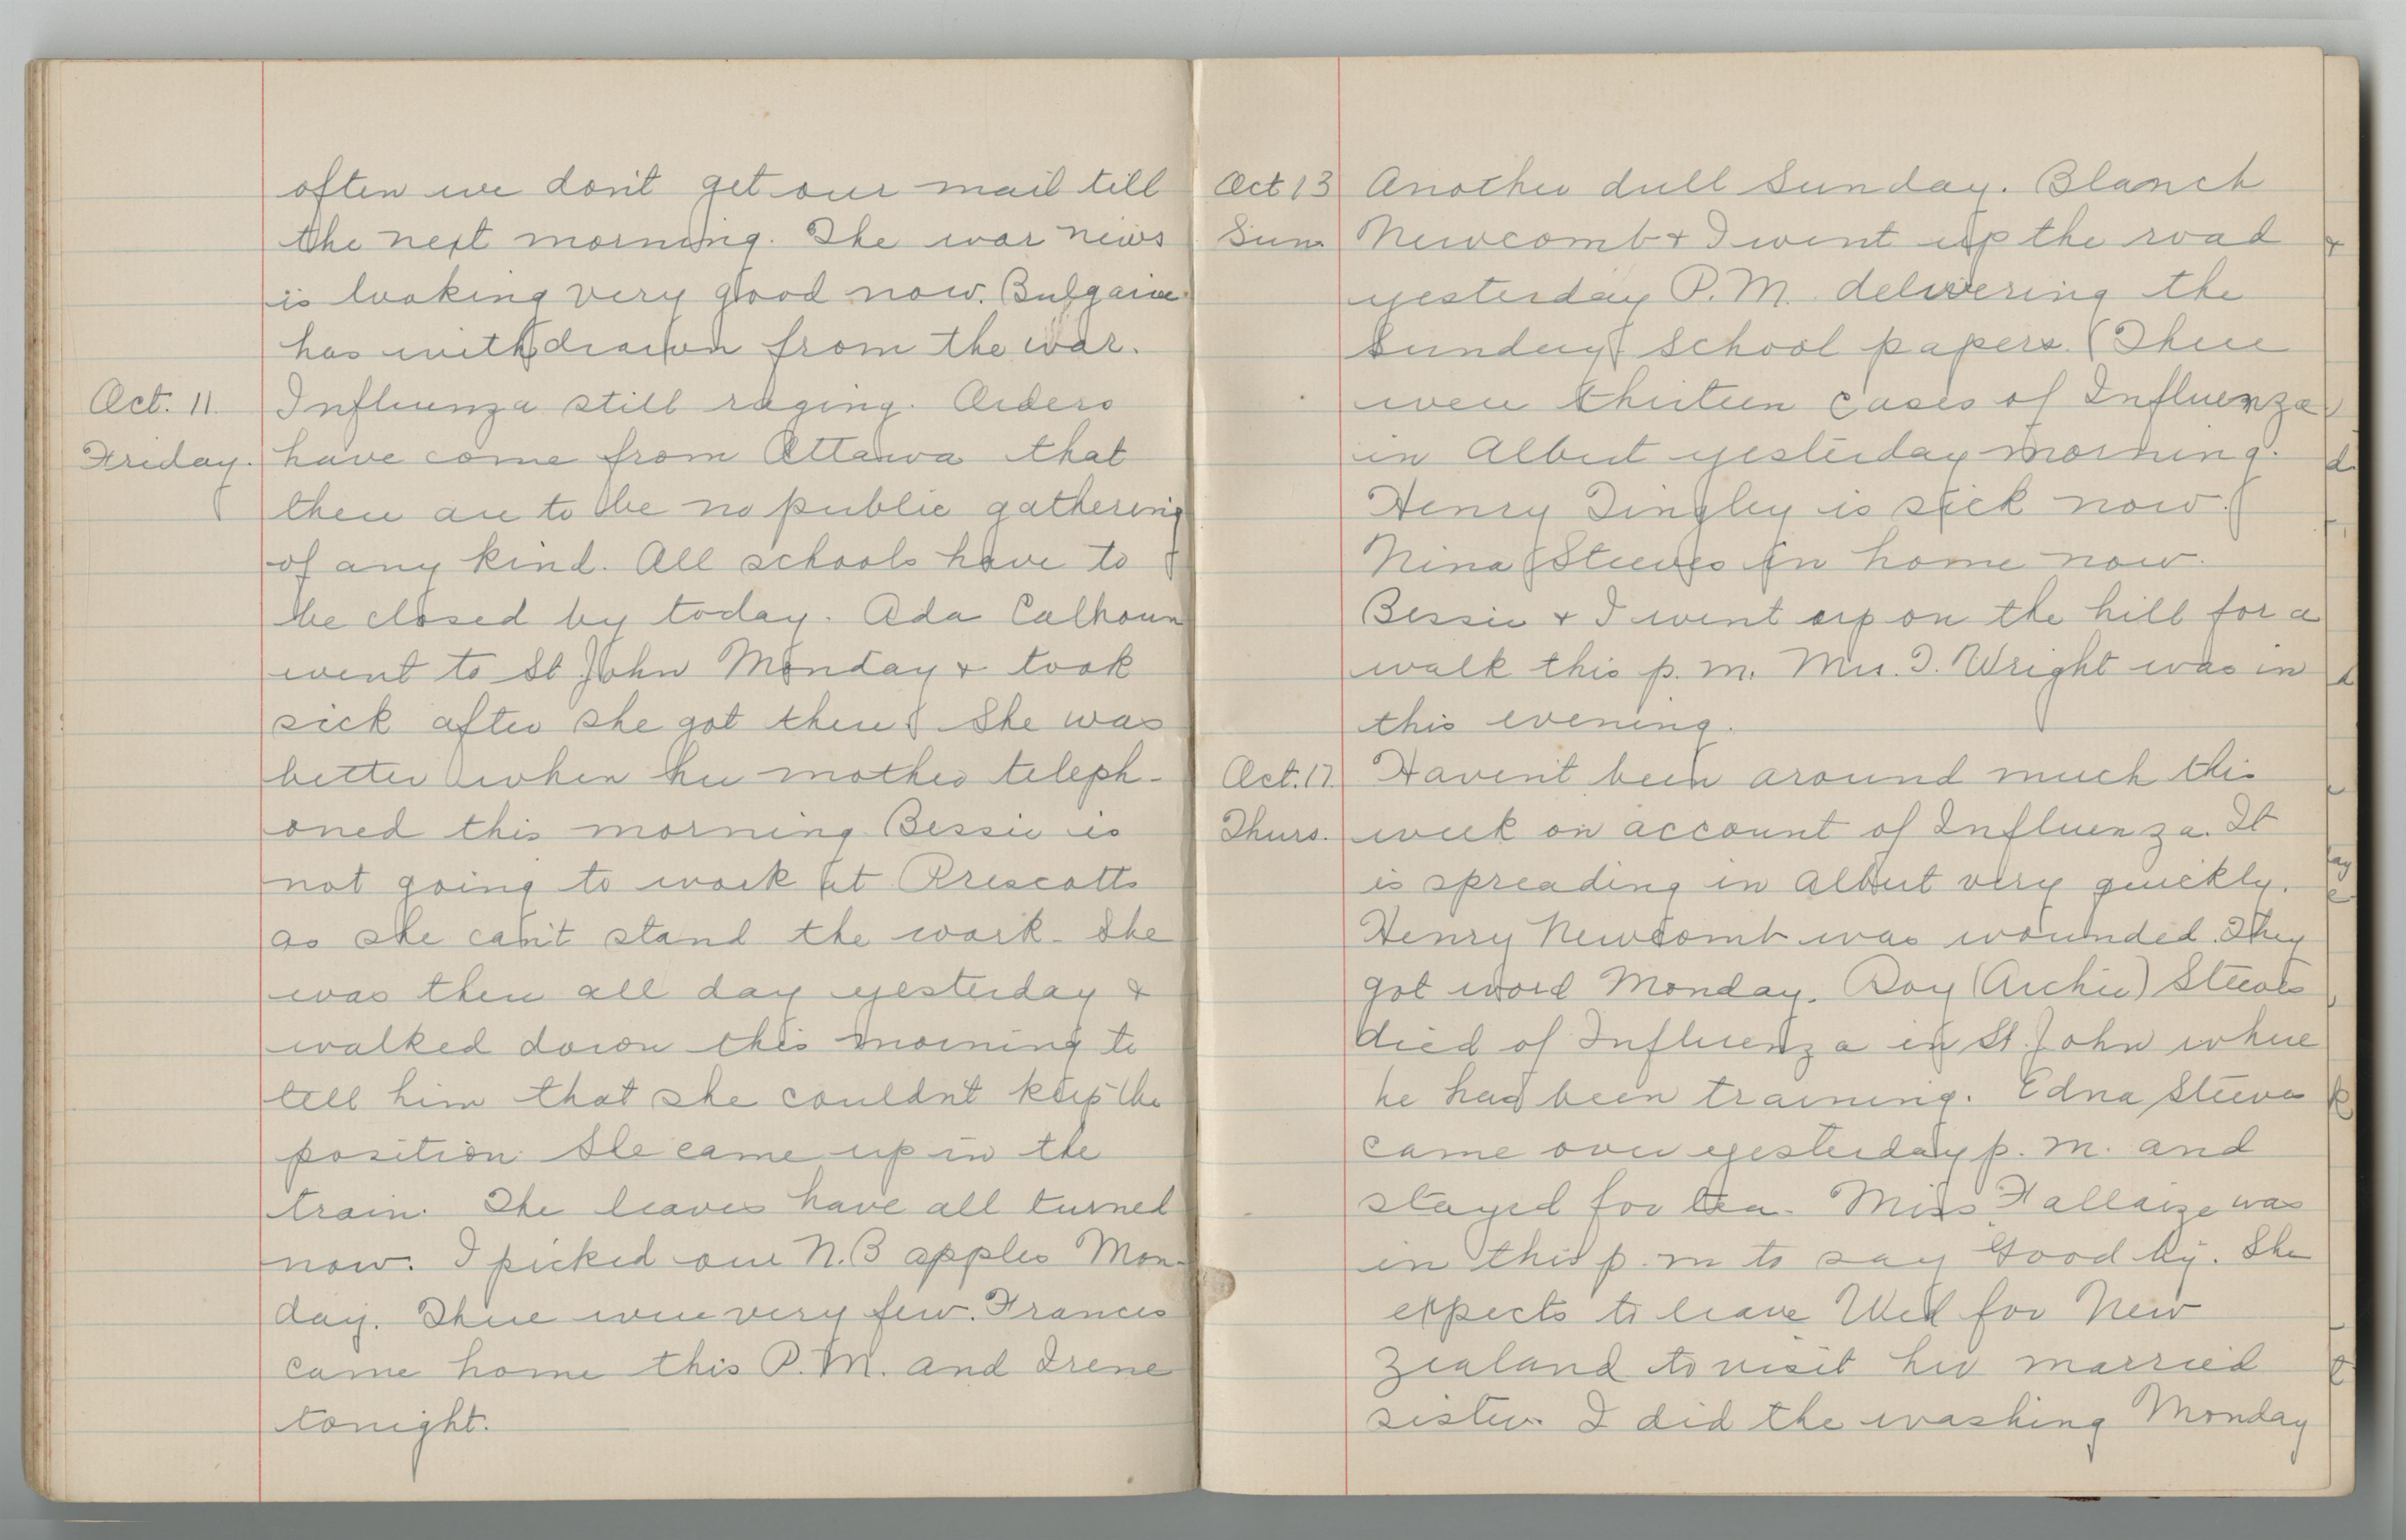 often we don't get our mail till
the next morning. The war news
is looking very good now. Bulgaria
has withdrawn from the war.
Oct. 11. Influenza still raging. Orders
Friday. have come from Ottawa that
there are to be no public gathering
of any kind. All schools have to
be closed by today. Ada Calhoun
went to St John Monday & took
sick after she got there. She was
better when her mother teleph-
oned this morning. Bessie is
not going to work at Prescotts
as she can't stand the work. She
was there all day yesterday &
walked down this morning to
tell him that she couldn't keep the
position. She came up in the
train. The leaves have all turned
now. I picked our N.B apples Mon-
day. There were very few. Frances
came home this P.M. and Irene
tonight.
Oct 13 Another dull Sunday. Blanch
Sun. Newcomb & I went up the road
yesterday P.M. delivering the
Sunday School papers. There
were thirteen cases of Influenza
in Albert yesterday morning.
Henry Tingley is sick now.
Nina Steeves in home now.
Bessie & I went up on the hill for a
walk this p.m. Mrs. I. Wright was in
this evening.
Oct. 17. Haven't been around much this
Thurs. week on account of Influenza. It
is spreading in Albert very quickly.
Henry Newcomb was wounded. They
got word Monday. Roy (Archie) Steeves
died of Influenza in St. John where
he had been training. Edna Steeves
came over yesterday p.m. and
stayed for tea. Miss Fallaize was
in this p.m to say Good by. She
expects to leave Wed for New
Zealand to visit her married
sister. I did the washing Monday